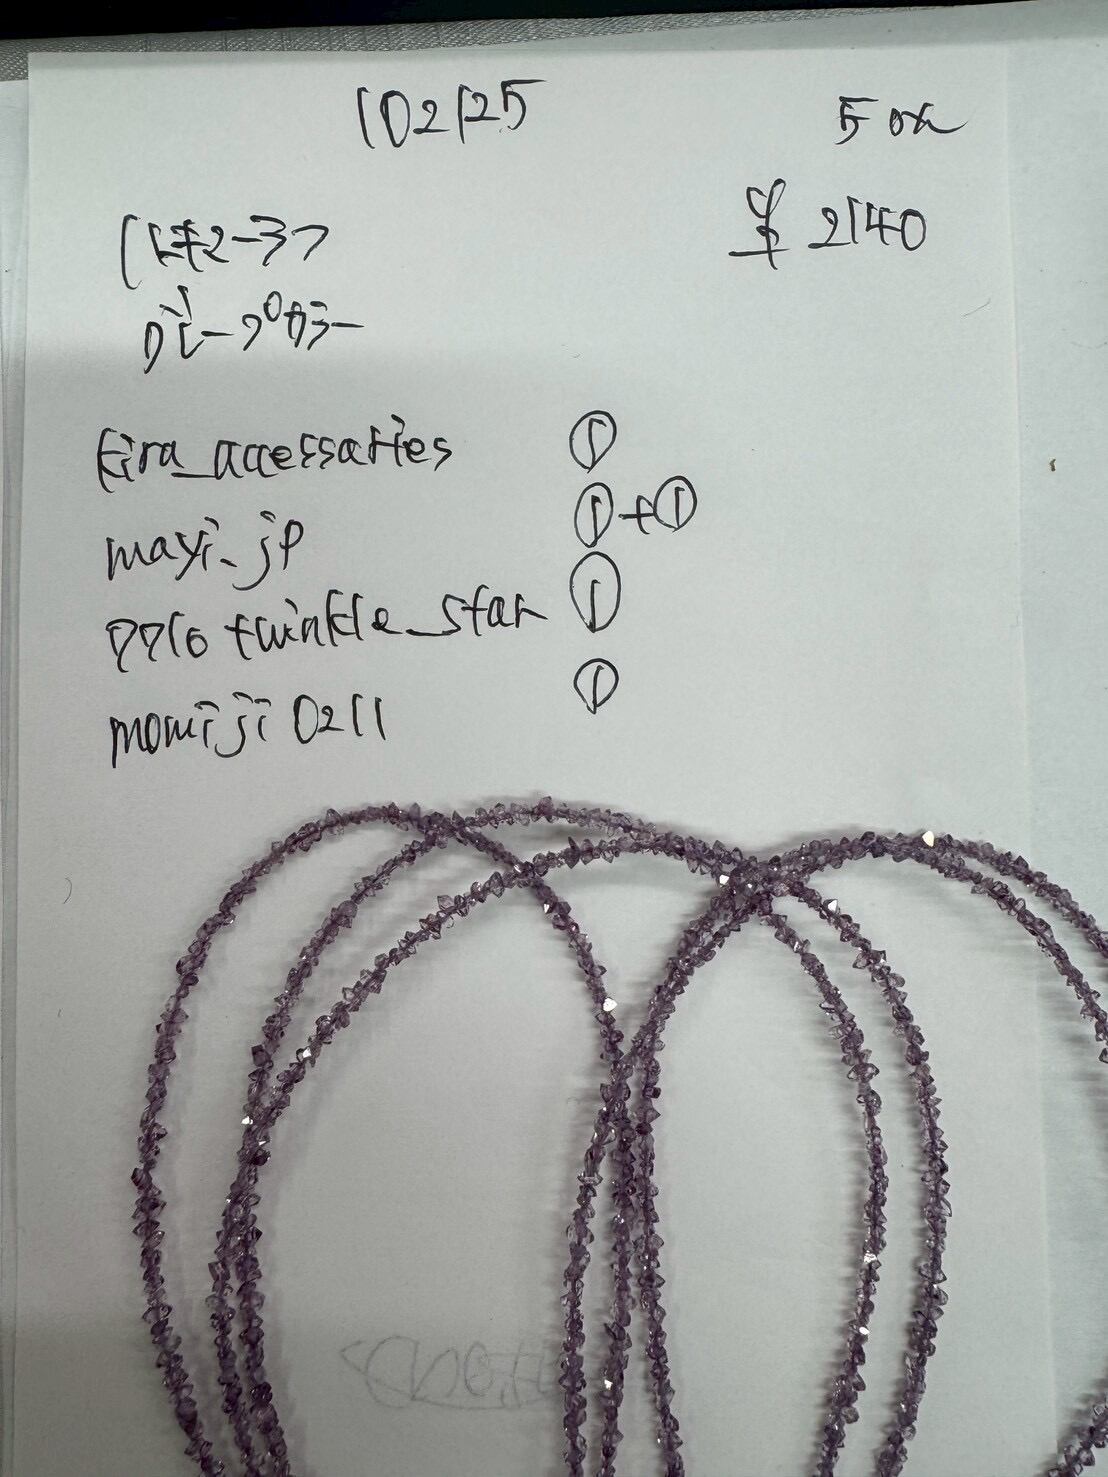 102125 5 ox
¥ 2140
ディープカラー
kira_accessaries ①
mayi_jp ①+①
7710twinkle_star ①
momiji0211 ①